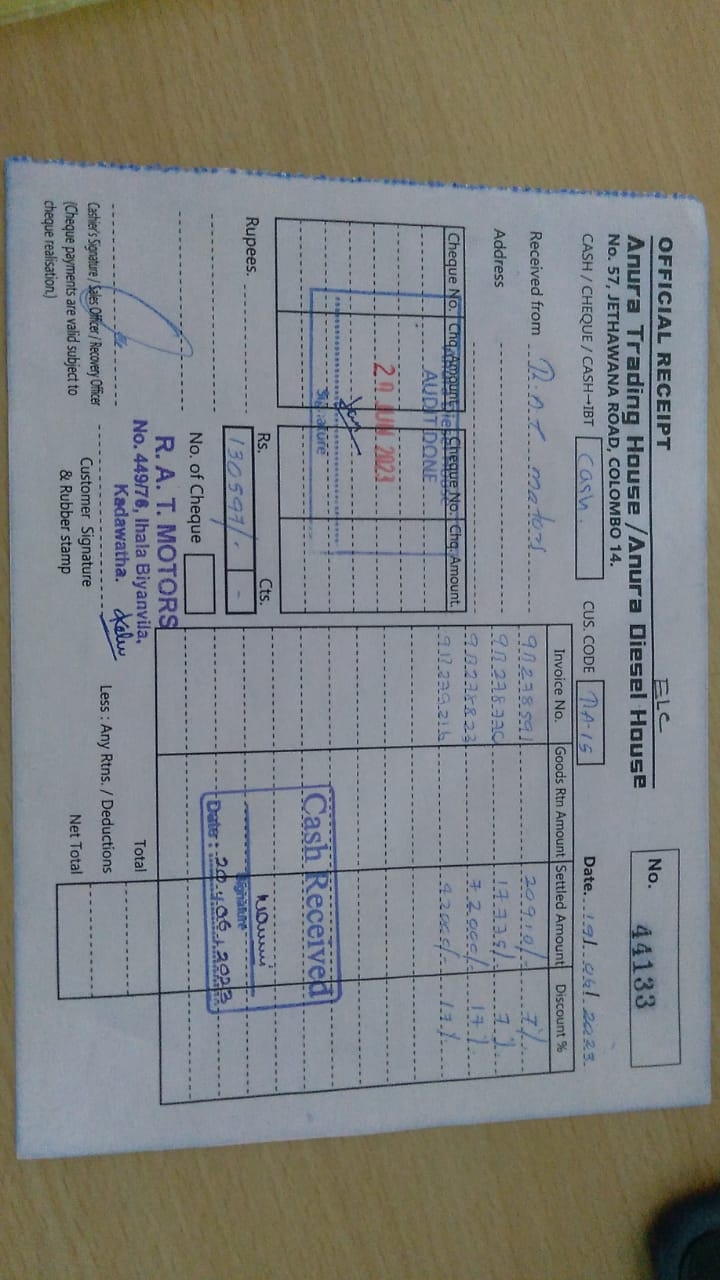 OFFICIAL RECEIPT
ELC
Anura Trading House /Anura Diesel House
No. 57, JETHAWANA ROAD, COLOMBO 14.
No. 44133
CASH / CHEQUE / CASH→IBT Cash.
CUS. CODE RA-15
Date. 19/ 06/ 2023
Received from R.A.T motors
Address
Cheque No. Chq. Amount Cheque No. Chq. Amount.
AUDIT DONE
20 JUN 2023
Signature
Invoice No. Goods Rtn Amount Settled Amount Discount %
912278591 20910/- 7%
7%
17%
17%
Cash Received
Signature
Date: 20.06.2023
Rupees.
Rs. Cts.
130597/- -
No. of Cheque
R. A. T. MOTORS
No. 449/76, Ihala Biyanvila,
Kadawatha.
Cashier's Signature / Sales Officer / Recovery Officer
(Cheque payments are valid subject to
cheque realisation.)
Customer Signature
& Rubber stamp
Total
Less : Any Rtns. / Deductions
Net Total